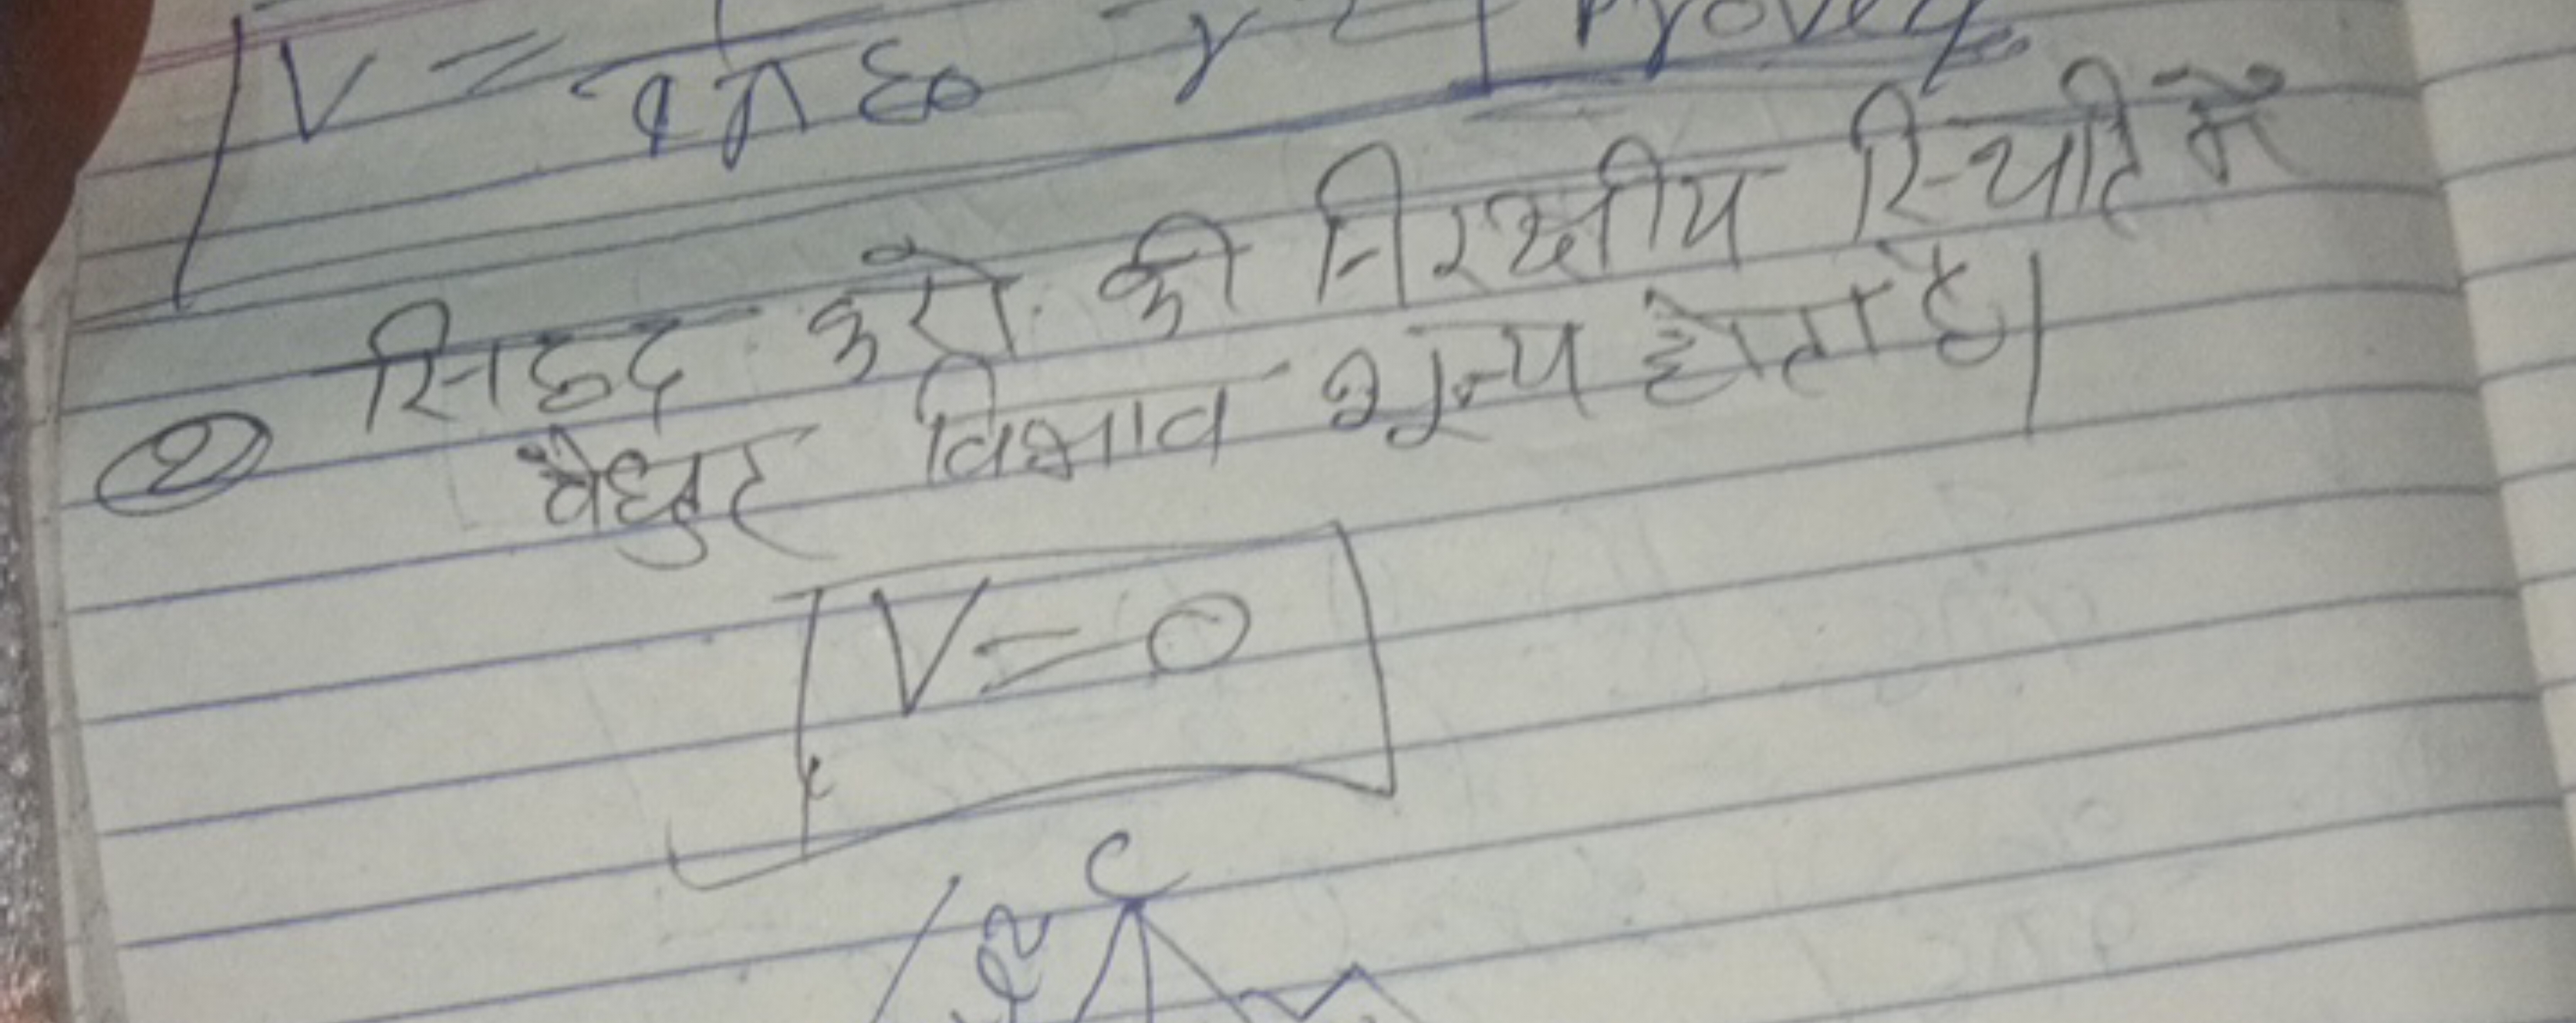 V = 4π ε0 r2 Proved
② सिद्ध करो की निरक्षीय स्थिति में
वैधुत विभव शून्य होता है।
V = 0
C